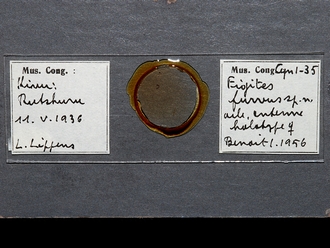 Mus. Cong. :
Kivu:
Rutshuru
11. V. 1936
L. Lippens
Mus. Cong Cyn 1-35
Figites
furvus sp. n.
aile, antenne
holotype ♀
Benoit 1. 1956